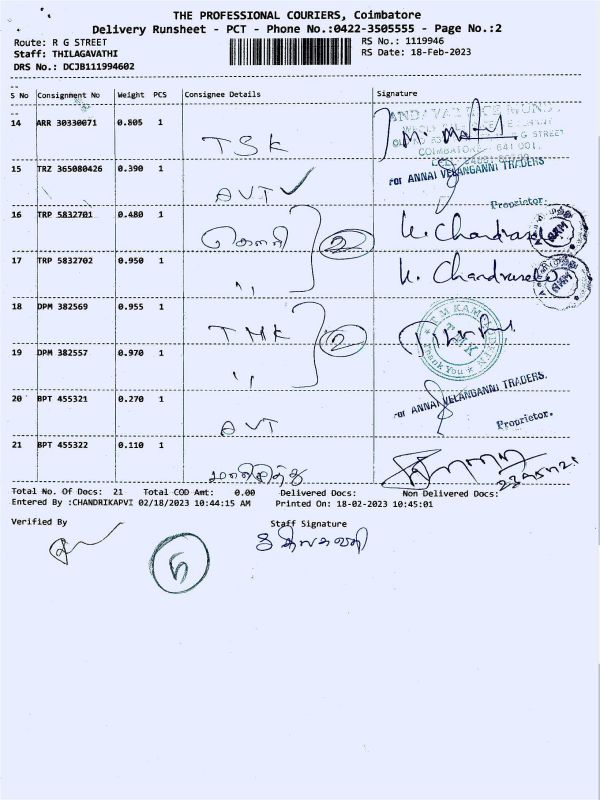 THE PROFESSIONAL COURIERS, Coimbatore
Delivery Runsheet - PCT - Phone No.:0422-3505555 - Page No.:2
Route: R G STREET RS No.: 1119946
Staff: THILAGAVATHI RS Date: 18-Feb-2023
DRS No.: DCJB111994602
S No Consignment No Weight PCS Consignee Details Signature
14 ARR 30330071 0.805 1 TSK
G STREET
COIMBATORE - 641 001.
15 TRZ 365080426 0.390 1 AVT ✓
For ANNAI VELANGANNI TRADERS
Proprietor.
16 TRP 5832701 0.480 1 2 K. Chandrasek
17 TRP 5832702 0.950 1 " K. Chandrasek
18 DPM 382569 0.955 1 TMK 2
T.M.K
Thank You
19 DPM 382557 0.970 1 "
20 BPT 455321 0.270 1 AVT
For ANNAI VELANGANNI TRADERS.
Proprietor.
21 BPT 455322 0.110 1
Total No. Of Docs: 21 Total COD Amt: 0.00 Delivered Docs: Non Delivered Docs:
Entered By :CHANDRIKAPVI 02/18/2023 10:44:15 AM Printed On: 18-02-2023 10:45:01
Verified By Staff Signature